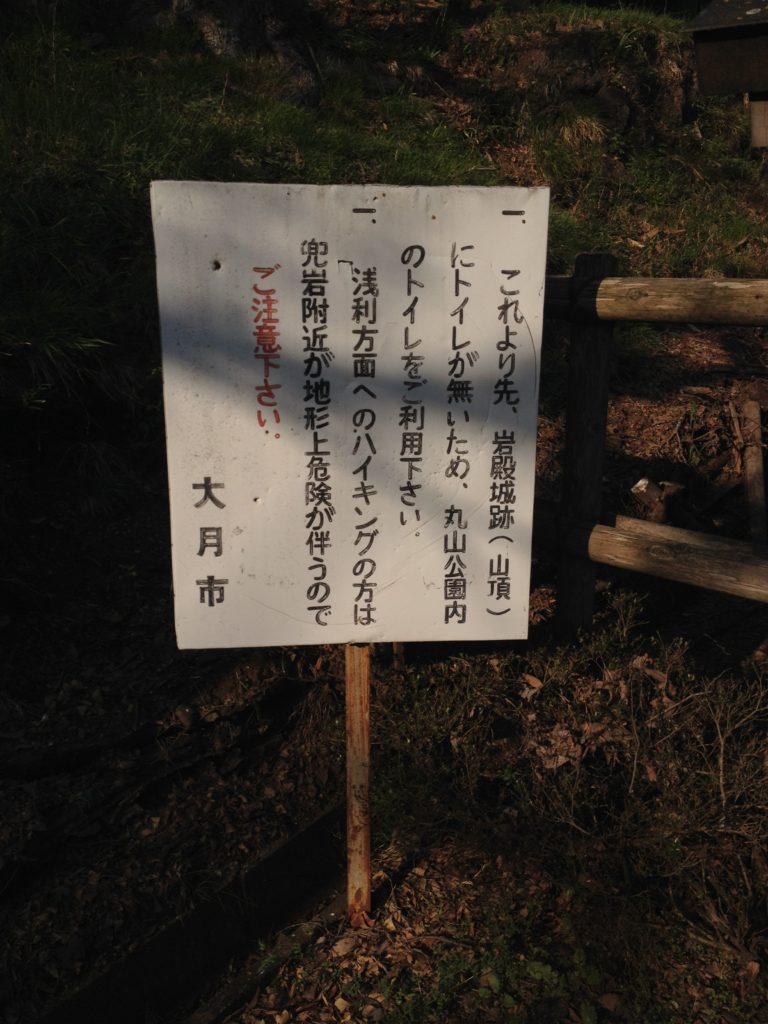 一、これより先、岩殿城跡（山頂）
にトイレが無いため、丸山公園内
のトイレをご利用下さい。
一、浅利方面へのハイキングの方は
兜岩附近が地形上危険が伴うので
ご注意下さい。
大月市